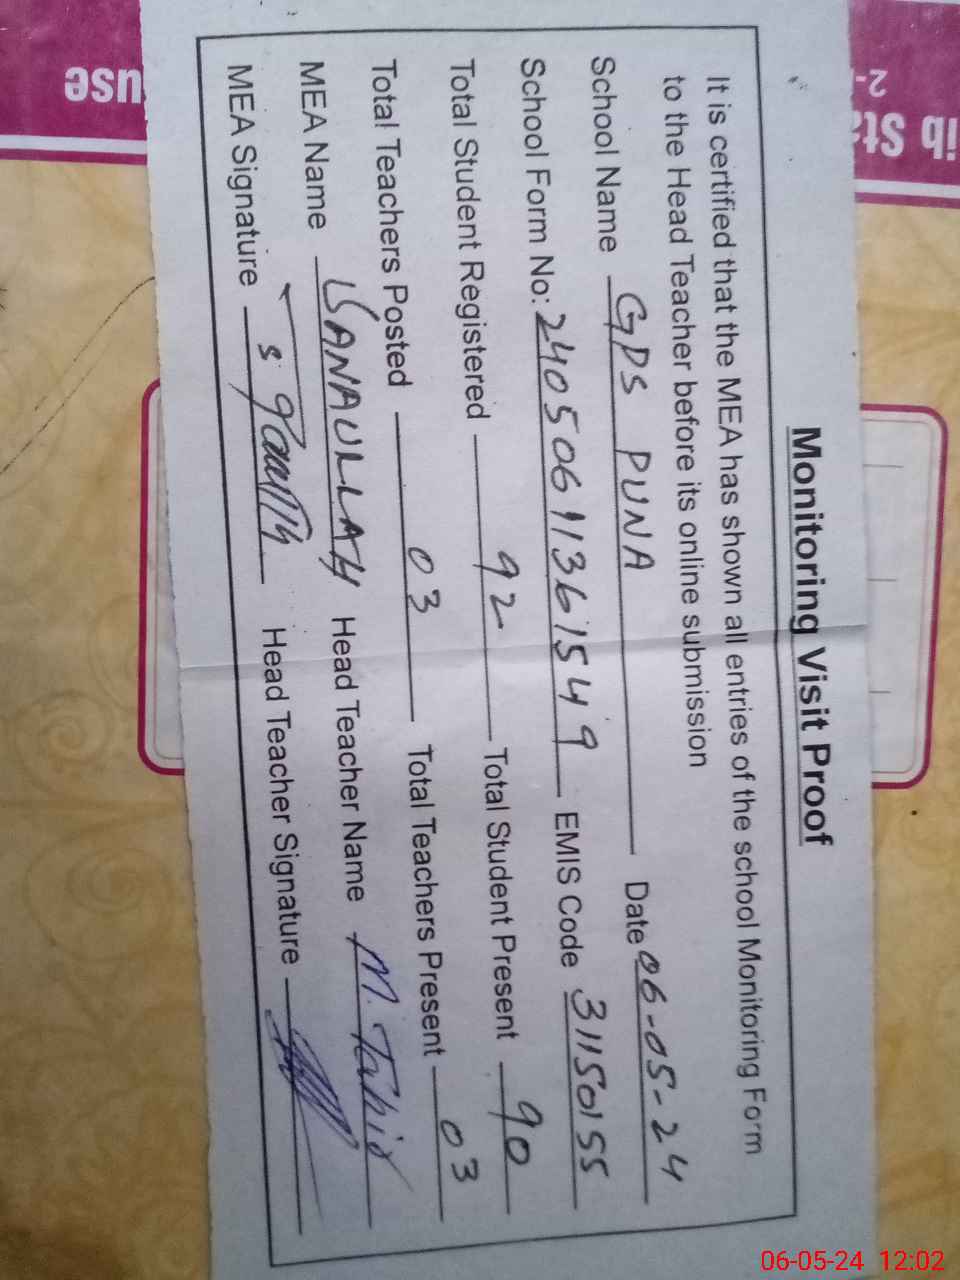 Monitoring Visit Proof
It is certified that the MEA has shown all entries of the school Monitoring Form
to the Head Teacher before its online submission
School Name GPS PUNA Date 06-05-24
School Form No: 24050611361549 EMIS Code 31150155
Total Student Registered 92 Total Student Present 90
Total Teachers Posted 03 Total Teachers Present 03
MEA Name SANAULLAH Head Teacher Name M. Tahir
MEA Signature Head Teacher Signature
06-05-24 12:02